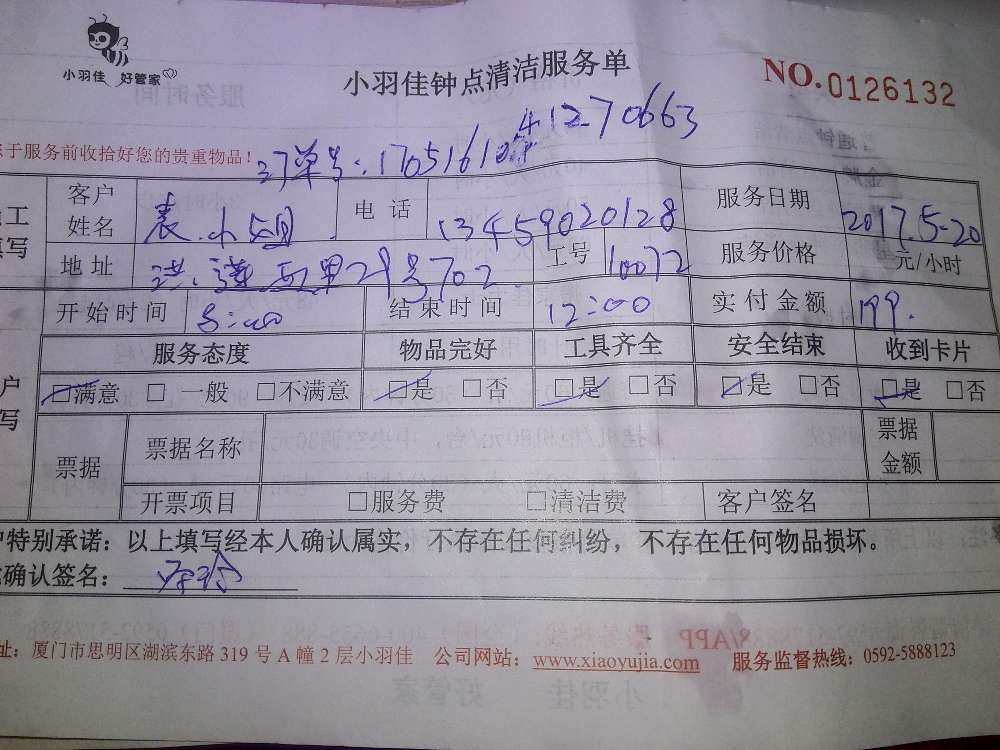 小羽佳 好管家
小羽佳钟点清洁服务单
NO.0126132
于服务前收拾好您的贵重物品!
订单号:170516104 41270663
客户姓名 袁小姐 电话 13459020128 服务日期 2017.5-20
地址 洪莲西里29号702 工号 10072 服务价格 元/小时
开始时间 8:00 结束时间 12:00 实付金额 199.
服务态度 物品完好 工具齐全 安全结束 收到卡片
☑满意 □一般 □不满意 ☑是 □否 ☑是 □否 ☑是 □否 ☑是 □否
票据 票据名称 票据金额
开票项目 □服务费 □清洁费 客户签名
特别承诺:以上填写经本人确认属实,不存在任何纠纷,不存在任何物品损坏。
确认签名:
址:厦门市思明区湖滨东路 319 号 A 幢 2 层小羽佳 公司网站:www.xiaoyujia.com 服务监督热线:0592-5888123